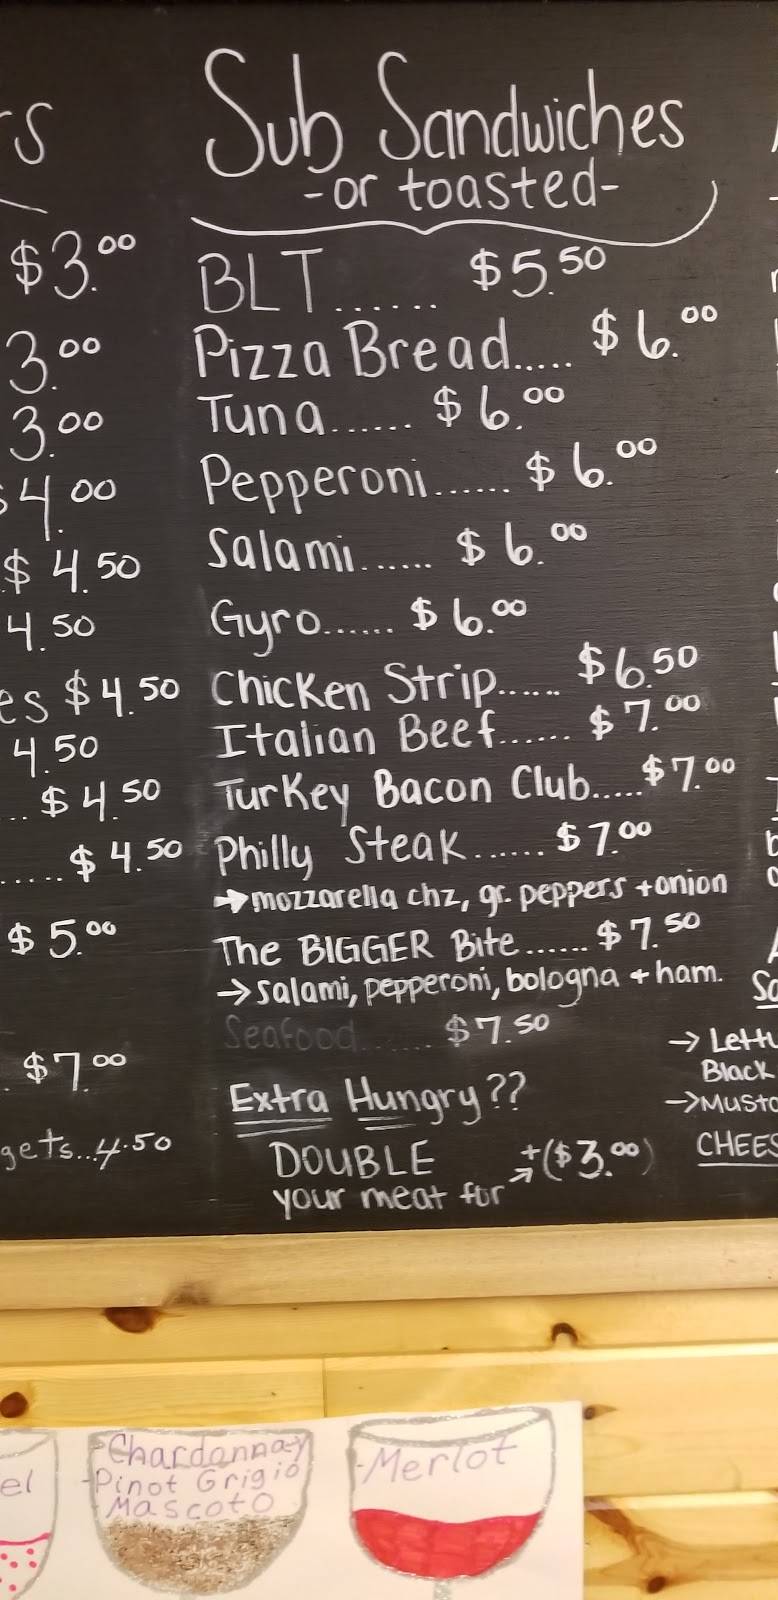 rs
$3.00
3.00
3.00
$4.00
$4.50
4.50
es $4.50
4.50
.. $4.50
..... $4.50
$5.00
. $7.00
gets...4.50
Sub Sandwiches
-or toasted-
BLT...... $5.50
Pizza Bread..... $6.00
Tuna...... $6.00
Pepperoni...... $6.00
Salami...... $6.00
Gyro...... $6.00
Chicken Strip...... $6.50
Italian Beef...... $7.00
Turkey Bacon Club..... $7.00
Philly Steak...... $7.00
→mozzarella chz, gr. peppers + onion
The BIGGER Bite...... $7.50
→Salami, pepperoni, bologna + ham.
Seafood...... $7.50
Extra Hungry??
DOUBLE
your meat for → +($3.00)
→ Lettu
Black
→Musta
CHEES
el
-Chardonnay
-Pinot Grigio
Mascoto
-Merlot